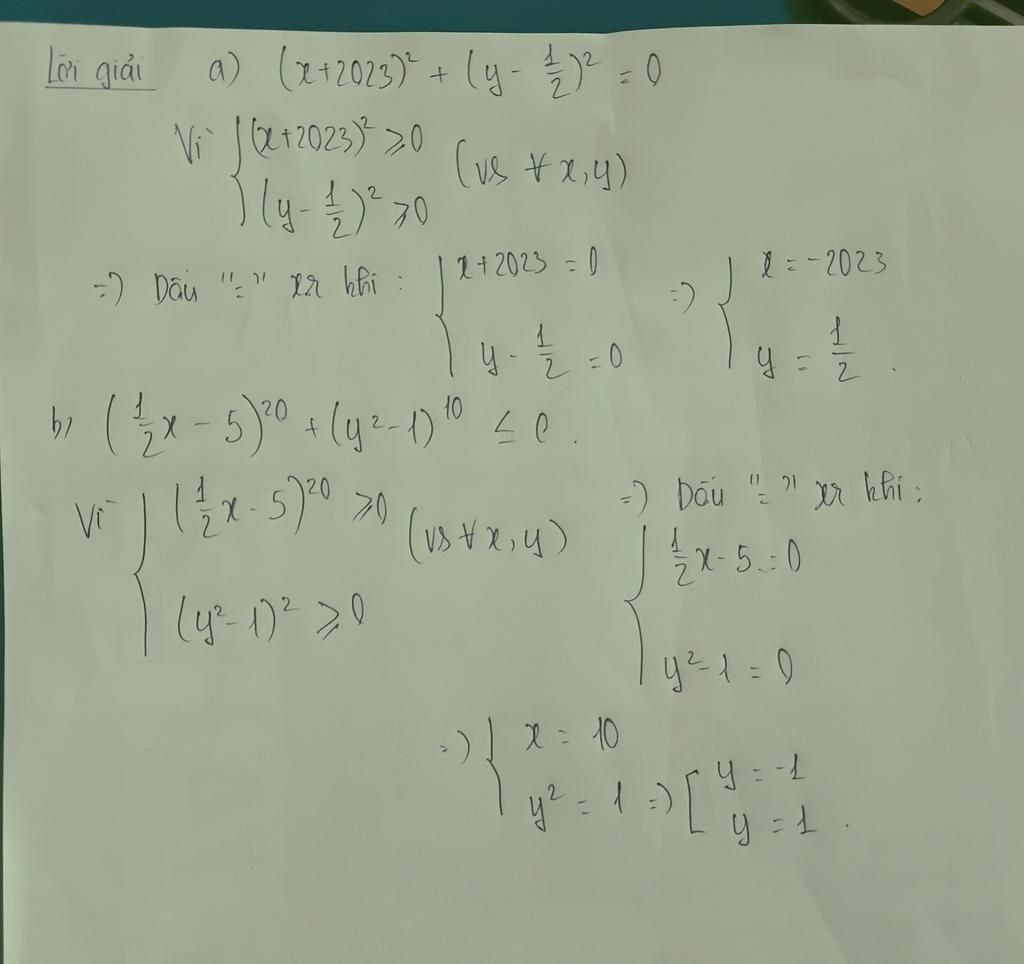 Lời giải a) (x+2023)² + (y - 1/2)² = 0
Vì { (x+2023)² ⩾ 0
(y - 1/2)² ⩾ 0 (vs ∀ x, y)
=) Dấu "=" xr khi : { x+2023 = 0
y - 1/2 = 0
=) { x = -2023
y = 1/2 .
b) (1/2x - 5)²⁰ + (y² - 1)¹⁰ ≤ 0 .
Vì { (1/2x - 5)²⁰ ⩾ 0
(y² - 1)² ⩾ 0 (vs ∀ x, y)
=) Dấu "=" xr khi :
{ 1/2x - 5 = 0
y² - 1 = 0
=) { x = 10
y² = 1 =) [ y = -1
y = 1 .